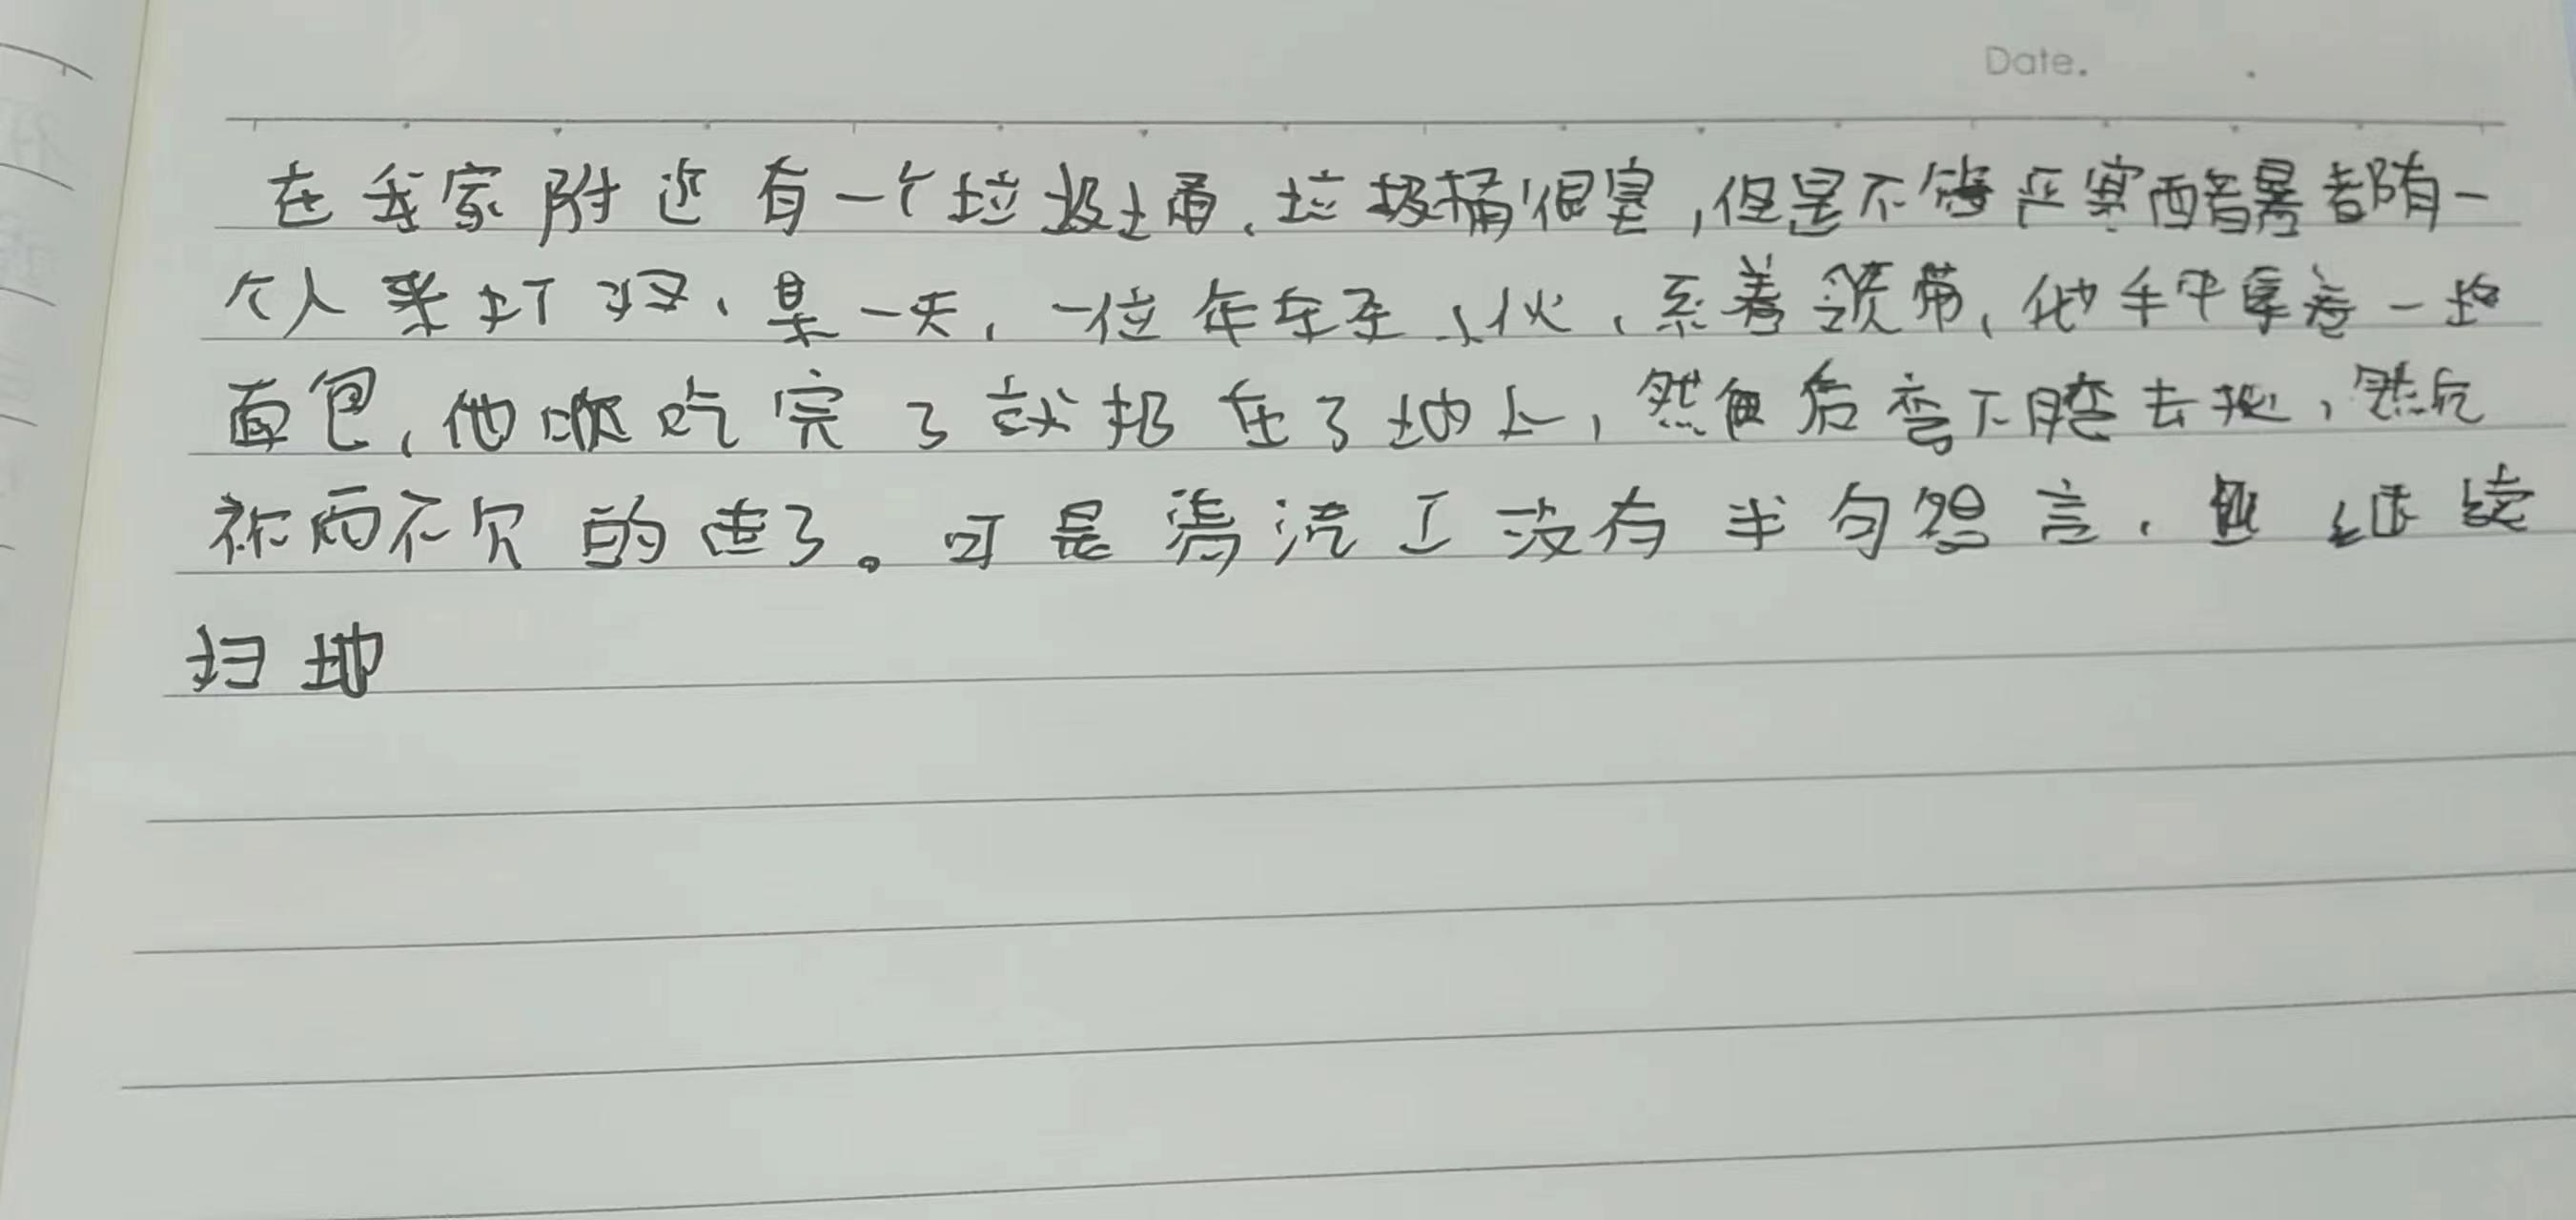 Date.
在我家附近有一个垃圾桶、垃圾桶很害,但是不管严寒酷暑都有一
个人来打扫、某一天,一位年轻小伙、系着领带,他手中拿着一块
面包,他吃完了就扔在了地上,然后弯下腰去,然后
不欠的走了。可是清洁工没有半句怨言、继续
扫地